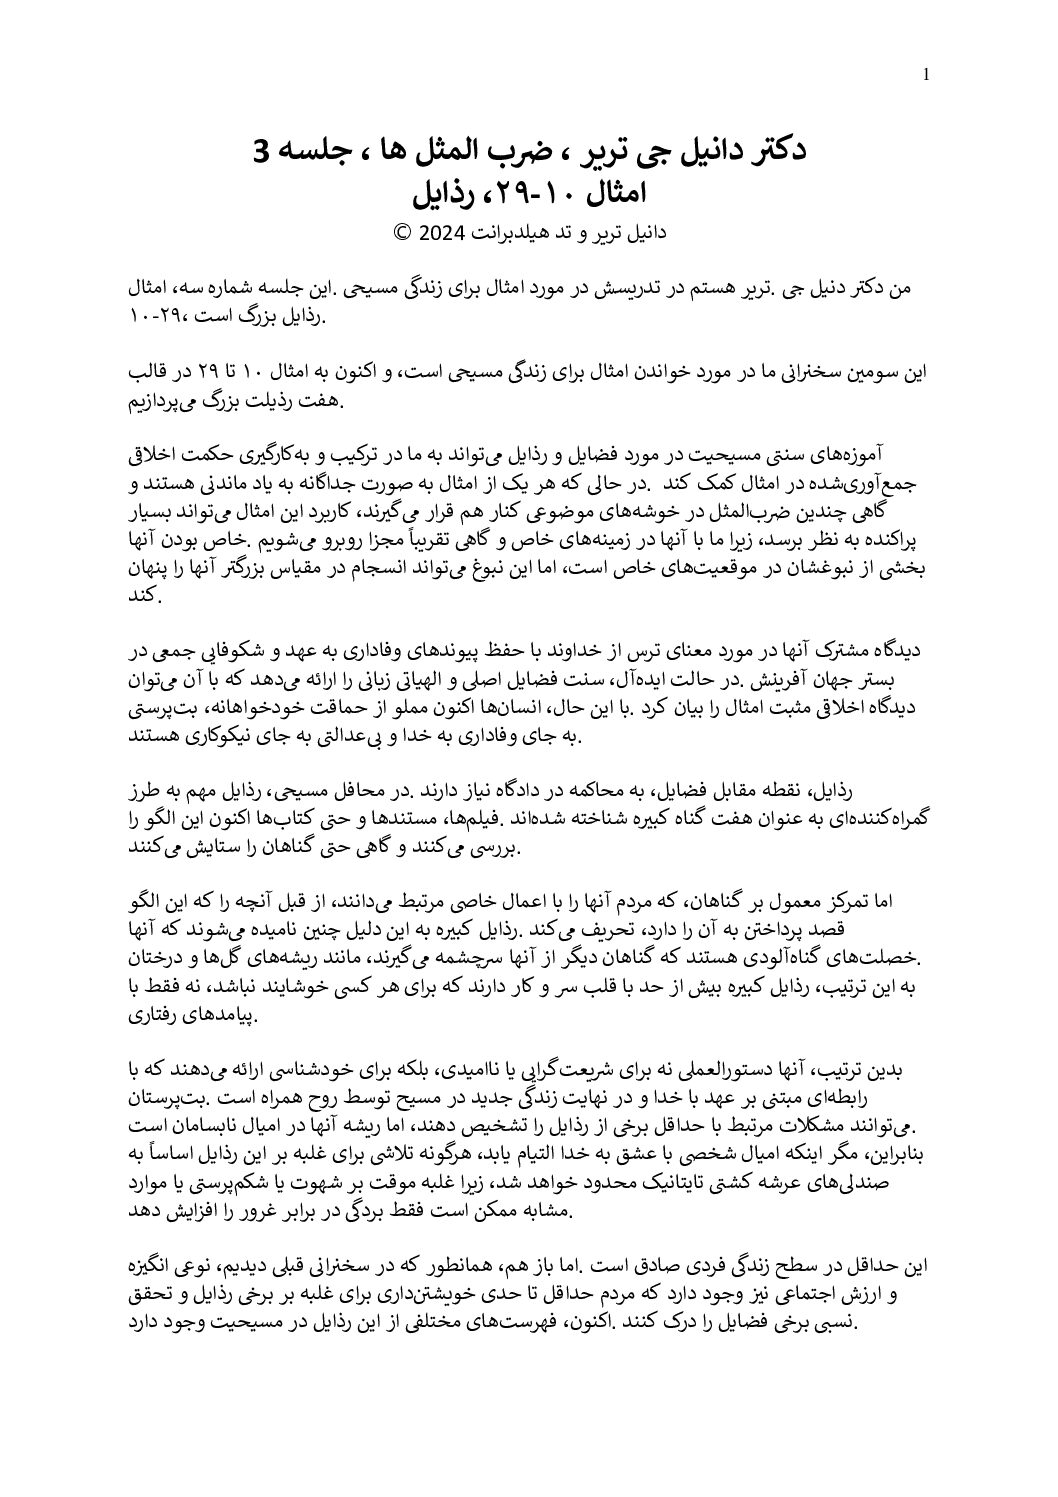 1
دکتر دانیل جی تریر ، ضرب المثل ها ، جلسه 3
امثال ۱۰-۲۹، رذایل
دانیل تریر و تد هیلدبرانت 2024 ©
من دکتر دنیل جی .تریر هستم در تدریسش در مورد امثال برای زندگی مسیحی .این جلسه شماره سه، امثال
۱۰-۲۹، رذایل بزرگ است.
این سومین سخنرانی ما در مورد خواندن امثال برای زندگی مسیحی است، و اکنون به امثال ۱۰ تا ۲۹ در قالب
هفت رذیلت بزرگ می‌پردازیم.
آموزه‌های سنتی مسیحیت در مورد فضایل و رذایل می‌تواند به ما در ترکیب و به‌کارگیری حکمت اخلاقی
جمع‌آوری‌شده در امثال کمک کند .در حالی که هر یک از امثال به صورت جداگانه به یاد ماندنی هستند و
گاهی چندین ضرب‌المثل در خوشه‌های موضوعی کنار هم قرار می‌گیرند، کاربرد این امثال می‌تواند بسیار
پراکنده به نظر برسد، زیرا ما با آنها در زمینه‌های خاص و گاهی تقریباً مجزا روبرو می‌شویم .خاص بودن آنها
بخشی از نبوغشان در موقعیت‌های خاص است، اما این نبوغ می‌تواند انسجام در مقیاس بزرگتر آنها را پنهان
کند.
دیدگاه مشترک آنها در مورد معنای ترس از خداوند با حفظ پیوندهای وفاداری به عهد و شکوفایی جمعی در
بستر جهان آفرینش .در حالت ایده‌آل، سنت فضایل اصلی و الهیاتی زبانی را ارائه می‌دهد که با آن می‌توان
دیدگاه اخلاقی مثبت امثال را بیان کرد .با این حال، انسان‌ها اکنون مملو از حماقت خودخواهانه، بت‌پرستی
به جای وفاداری به خدا و بی‌عدالتی به جای نیکوکاری هستند.
رذایل، نقطه مقابل فضایل، به محاکمه در دادگاه نیاز دارند .در محافل مسیحی، رذایل مهم به طرز
گمراه‌کننده‌ای به عنوان هفت گناه کبیره شناخته شده‌اند .فیلم‌ها، مستندها و حتی کتاب‌ها اکنون این الگو را
بررسی می‌کنند و گاهی حتی گناهان را ستایش می‌کنند.
اما تمرکز معمول بر گناهان، که مردم آنها را با اعمال خاصی مرتبط می‌دانند، از قبل آنچه را که این الگو
قصد پرداختن به آن را دارد، تحریف می‌کند .رذایل کبیره به این دلیل چنین نامیده می‌شوند که آنها
خصلت‌های گناه‌آلودی هستند که گناهان دیگر از آنها سرچشمه می‌گیرند، مانند ریشه‌های گل‌ها و درختان.
به این ترتیب، رذایل کبیره بیش از حد با قلب سر و کار دارند که برای هر کسی خوشایند نباشد، نه فقط با
پیامدهای رفتاری.
بدین ترتیب، آنها دستورالعملی نه برای شریعت‌گرایی یا ناامیدی، بلکه برای خودشناسی ارائه می‌دهند که با
رابطه‌ای مبتنی بر عهد با خدا و در نهایت زندگی جدید در مسیح توسط روح همراه است .بت‌پرستان
می‌توانند مشکلات مرتبط با حداقل برخی از رذایل را تشخیص دهند، اما ریشه آنها در امیال نابسامان است.
بنابراین، مگر اینکه امیال شخصی با عشق به خدا التیام یابد، هرگونه تلاشی برای غلبه بر این رذایل اساساً به
صندلی‌های عرشه کشتی تایتانیک محدود خواهد شد، زیرا غلبه موقت بر شهوت یا شکم‌پرستی یا موارد
مشابه ممکن است فقط بردگی در برابر غرور را افزایش دهد.
این حداقل در سطح زندگی فردی صادق است .اما باز هم، همانطور که در سخنرانی قبلی دیدیم، نوعی انگیزه
و ارزش اجتماعی نیز وجود دارد که مردم حداقل تا حدی خویشتن‌داری برای غلبه بر برخی رذایل و تحقق
نسبی برخی فضایل را درک کنند .اکنون، فهرست‌های مختلفی از این رذایل در مسیحیت وجود دارد.